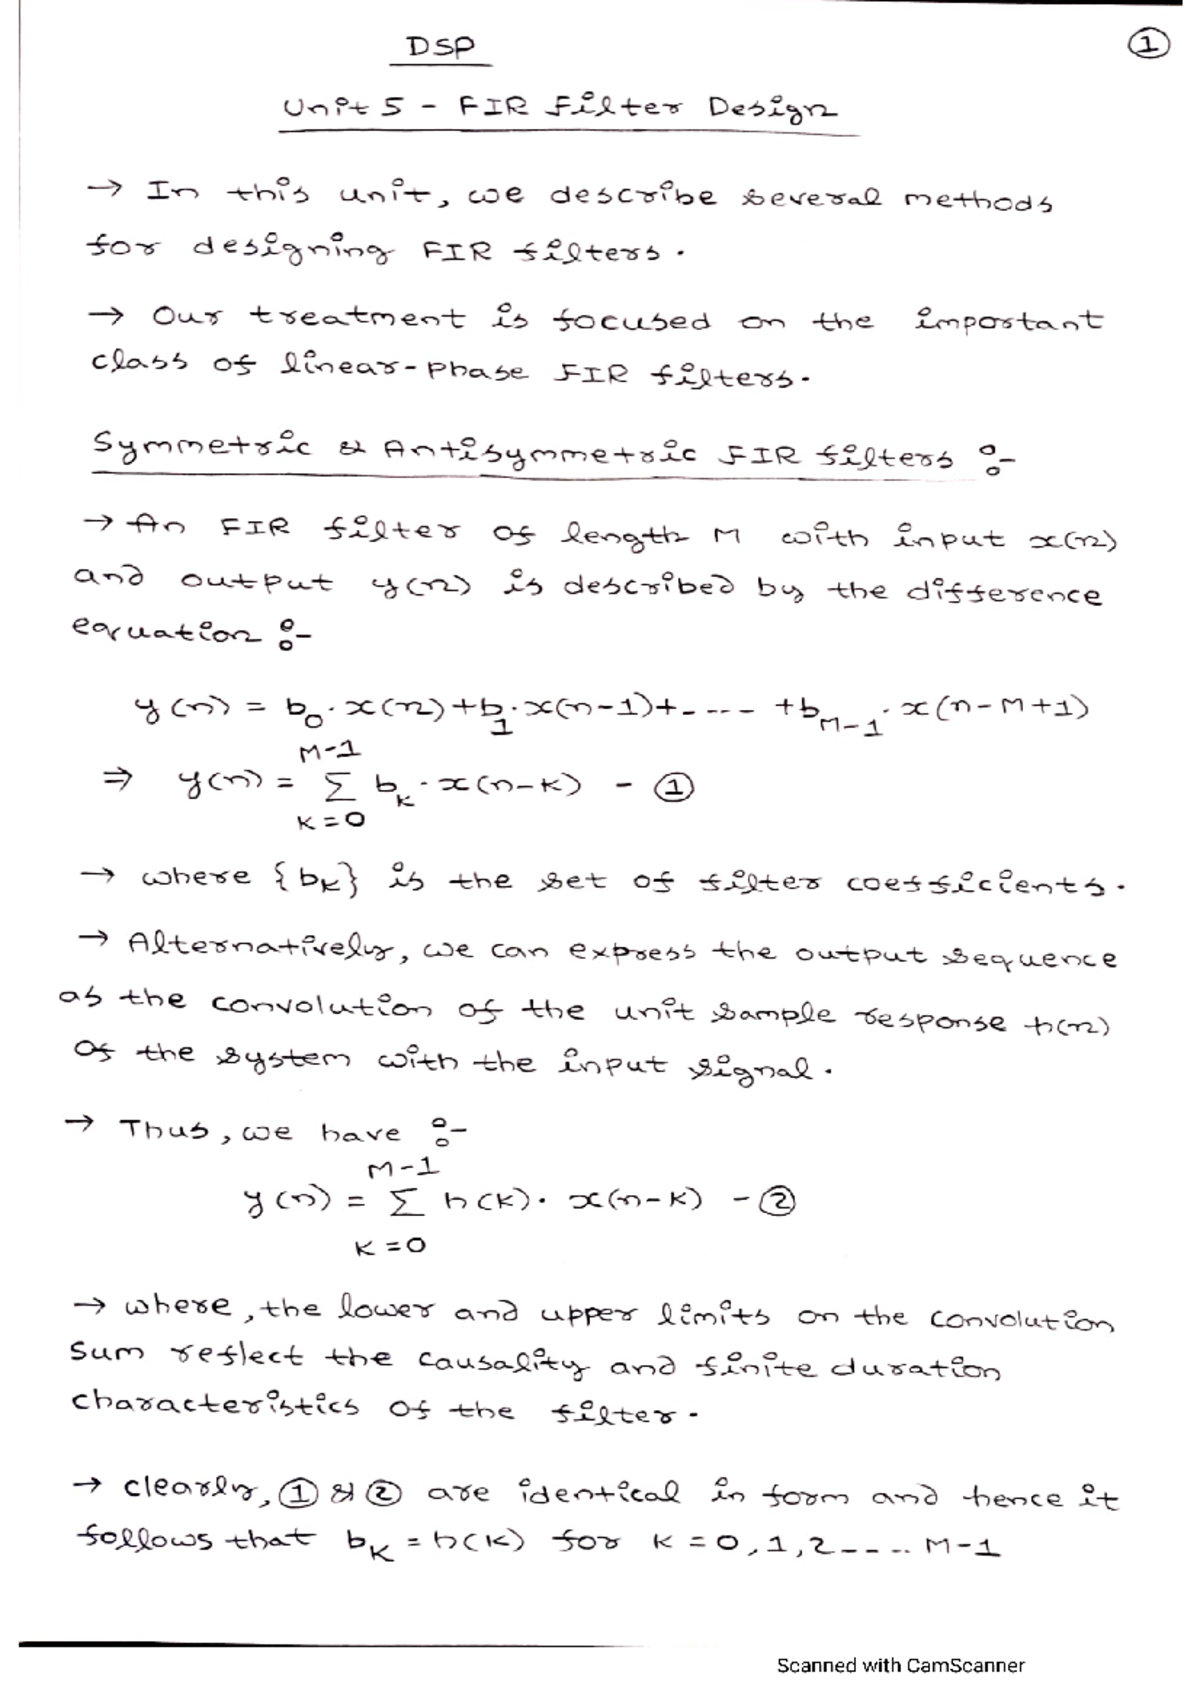 DSP
①
Unit 5 - FIR Filter Design
→ In this unit, we describe several methods
for designing FIR filters.
→ Our treatment is focused on the important
class of linear-phase FIR filters.
Symmetric & Antisymmetric FIR filters :-
→ An FIR filter of length M with input x(n)
and output y(n) is described by the difference
equation :-
y(n) = b₀·x(n)+b₁·x(n-1)+----- +b_{M-1}·x(n-M+1)
M-1
⇒ y(n) = Σ b_k·x(n-k) - ①
K=0
→ where {b_k} is the set of filter coefficients.
→ Alternatively, we can express the output sequence
as the convolution of the unit sample response h(n)
of the system with the input signal.
→ Thus, we have :-
M-1
y(n) = Σ h(k)· x(n-k) - ②
K=0
→ where, the lower and upper limits on the convolution
sum reflect the causality and finite duration
characteristics of the filter.
→ clearly, ① & ② are identical in form and hence it
follows that b_K = h(K) for K = 0,1,2----.. M-1
Scanned with CamScanner